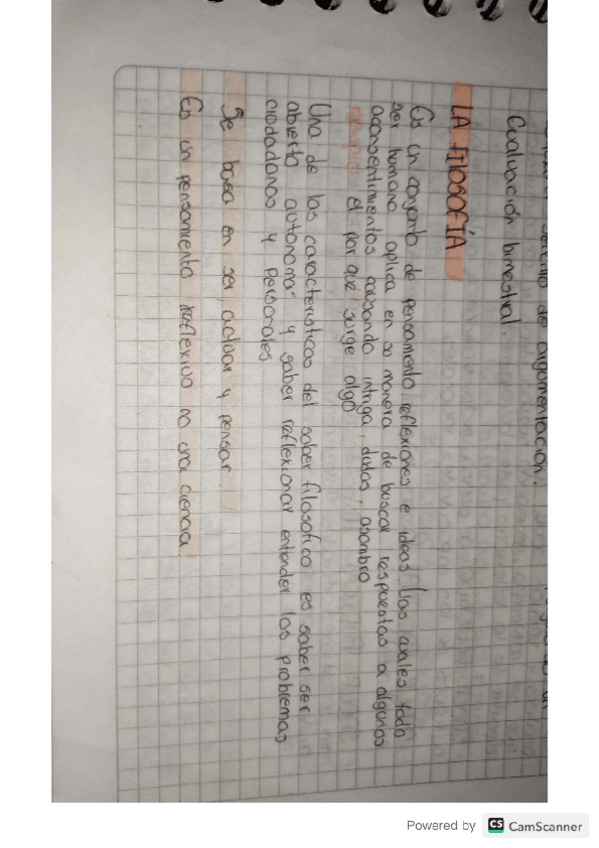 de argumentación.
Evaluación bimestral.
LA FILOSOFÍA
Es un conjunto de pensamiento, reflexiones e ideas. Las cuales todo
ser humano aplica en su manera de buscar respuestas a algunos
causando intriga, dudas, asombro
ejemplo el por qué surge algo
Una de las caracteristicas del saber filosofico es saber ser
abierto autonoma y saber reflexionar entender los problemas
ciudadanos y personales
Se basa en ser, actuar y pensar.
Es un pensamiento reflexivo no una ciencia
Powered by CS CamScanner